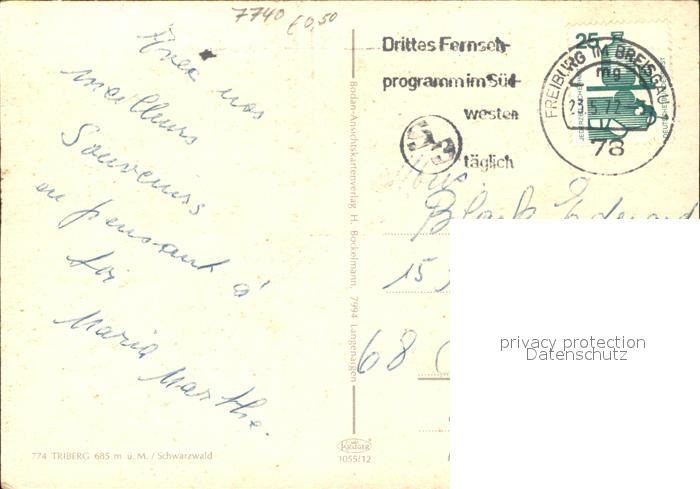 7740 €0,50
Avec nos
meilleurs
Souvenirs
en pensant à
toi
Maria Marthe.
774 TRIBERG 685 m ü. M. / Schwarzwald
Bodan-Ansichtskartenverlag H. Bockelmann, 7994 Langenargen
KRÜGER
1055/12
Drittes Fernseh-
programm im Süd-
westen
täglich
S3
25
FREIBURG IM BREISGAU
mg
23.5.72
78
JEDERZEIT SICHERHEIT
DEUTSCHE BUNDESPOST
Black Edouard
15
68
privacy protection
Datenschutz